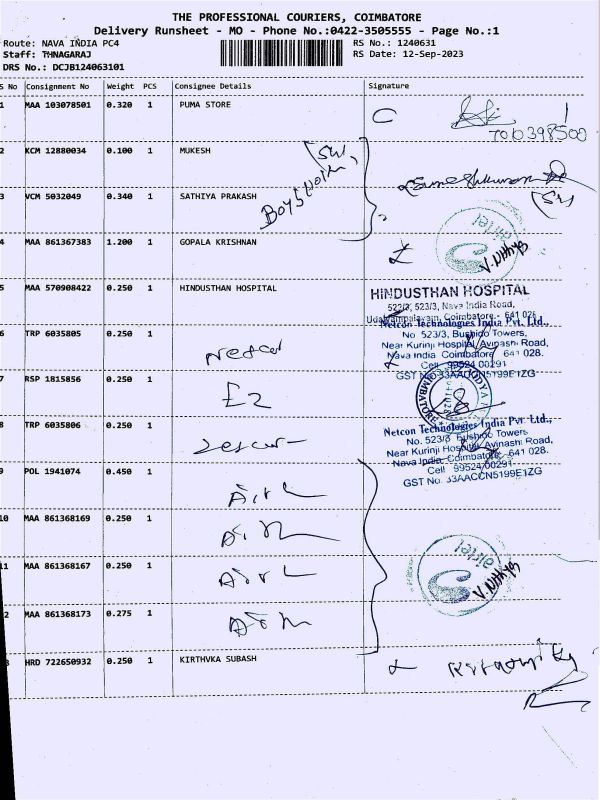 THE PROFESSIONAL COURIERS, COIMBATORE
Delivery Runsheet - MO - Phone No.:0422-3505555 - Page No.:1
Route: NAVA INDIA PC4 RS No.: 1240631
Staff: THNAGARAJ RS Date: 12-Sep-2023
DRS No.: DCJB124063101
S No Consignment No Weight PCS Consignee Details Signature
1 MAA 103078501 0.320 1 PUMA STORE
2 KCM 12880034 0.100 1 MUKESH
3 VCM 5032049 0.340 1 SATHIYA PRAKASH
airtel
V. Nithya
4 MAA 861367383 1.200 1 GOPALA KRISHNAN
5 MAA 570908422 0.250 1 HINDUSTHAN HOSPITAL
HINDUSTHAN HOSPITAL
522/3, 523/3, Nava India Road,
Udayampalayam, Coimbatore - 641 028
Netcon Technologies India Pvt. Ltd.,
6 TRP 6035805 0.250 1
No. 523/3, Bushido Towers,
Near Kurinji Hospital, Avinashi Road,
Nava India Coimbatore 641 028.
Cell 99524 00291
GST No 33AACCN5199E1ZG
7 RSP 1815856 0.250 1
8 TRP 6035806 0.250 1
Netcon Technologies India Pvt Ltd.,
No. 523/3, Bushido Towers,
Near Kurinji Hospital, Avinashi Road,
Nava India, Coimbatore 641 028.
Cell 99524 00291
GST No. 33AACCN5199E1ZG
9 POL 1941074 0.450 1
10 MAA 861368169 0.250 1
airtel
V. Nithya
11 MAA 861368167 0.250 1
12 MAA 861368173 0.275 1
HRD 722650932 0.250 1 KIRTHVKA SUBASH